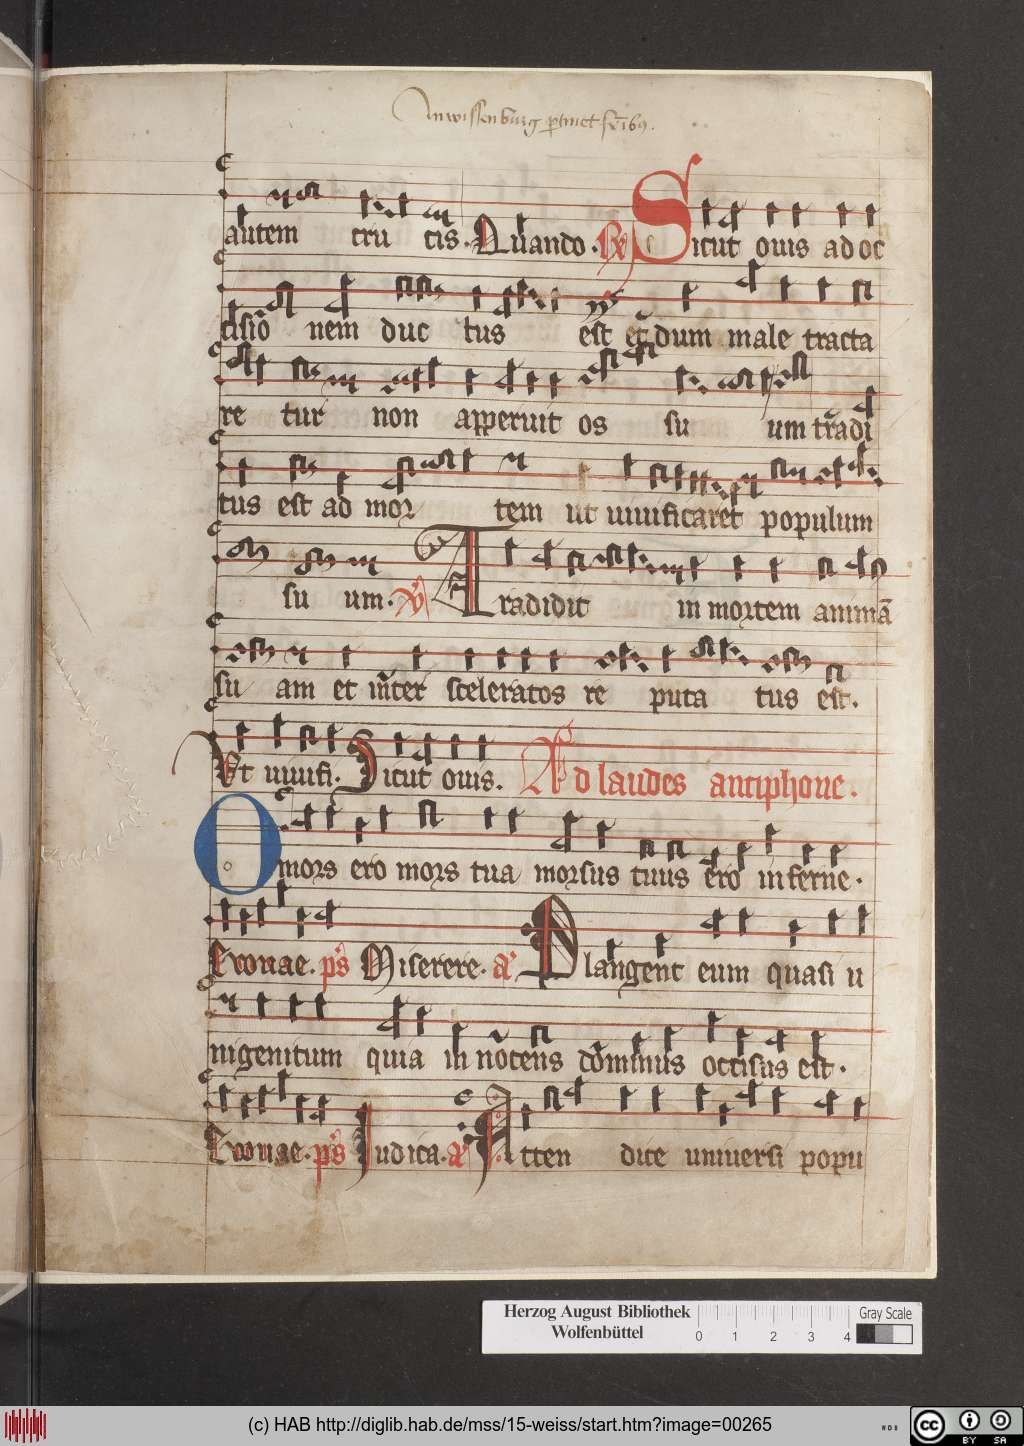 autem cru cis. Quando. Sicut ouis ad oc
cisiō nem duc tus est et dum male tracta
re tur non apperuit os su um tradi
tus est ad mor tem ut uiuificaret populum
su um. Tradidit in mortem animā
su am et inter sceleratos re puta tus est.
Ut uiuifi. Sicut ouis. Ad laudes antiphone.
O mors ero mors tua morsus tuus ero inferne.
Euouae. ps Miserere. a Plangent eum quasi u
nigenitum quia in nocens dominus occisus est.
Euouae. ps Iudica. a Atten dite uniuersi popu
Herzog August Bibliothek
Wolfenbüttel
0 1 2 3 4
Gray Scale
(c) HAB http://diglib.hab.de/mss/15-weiss/start.htm?image=00265
cc BY SA